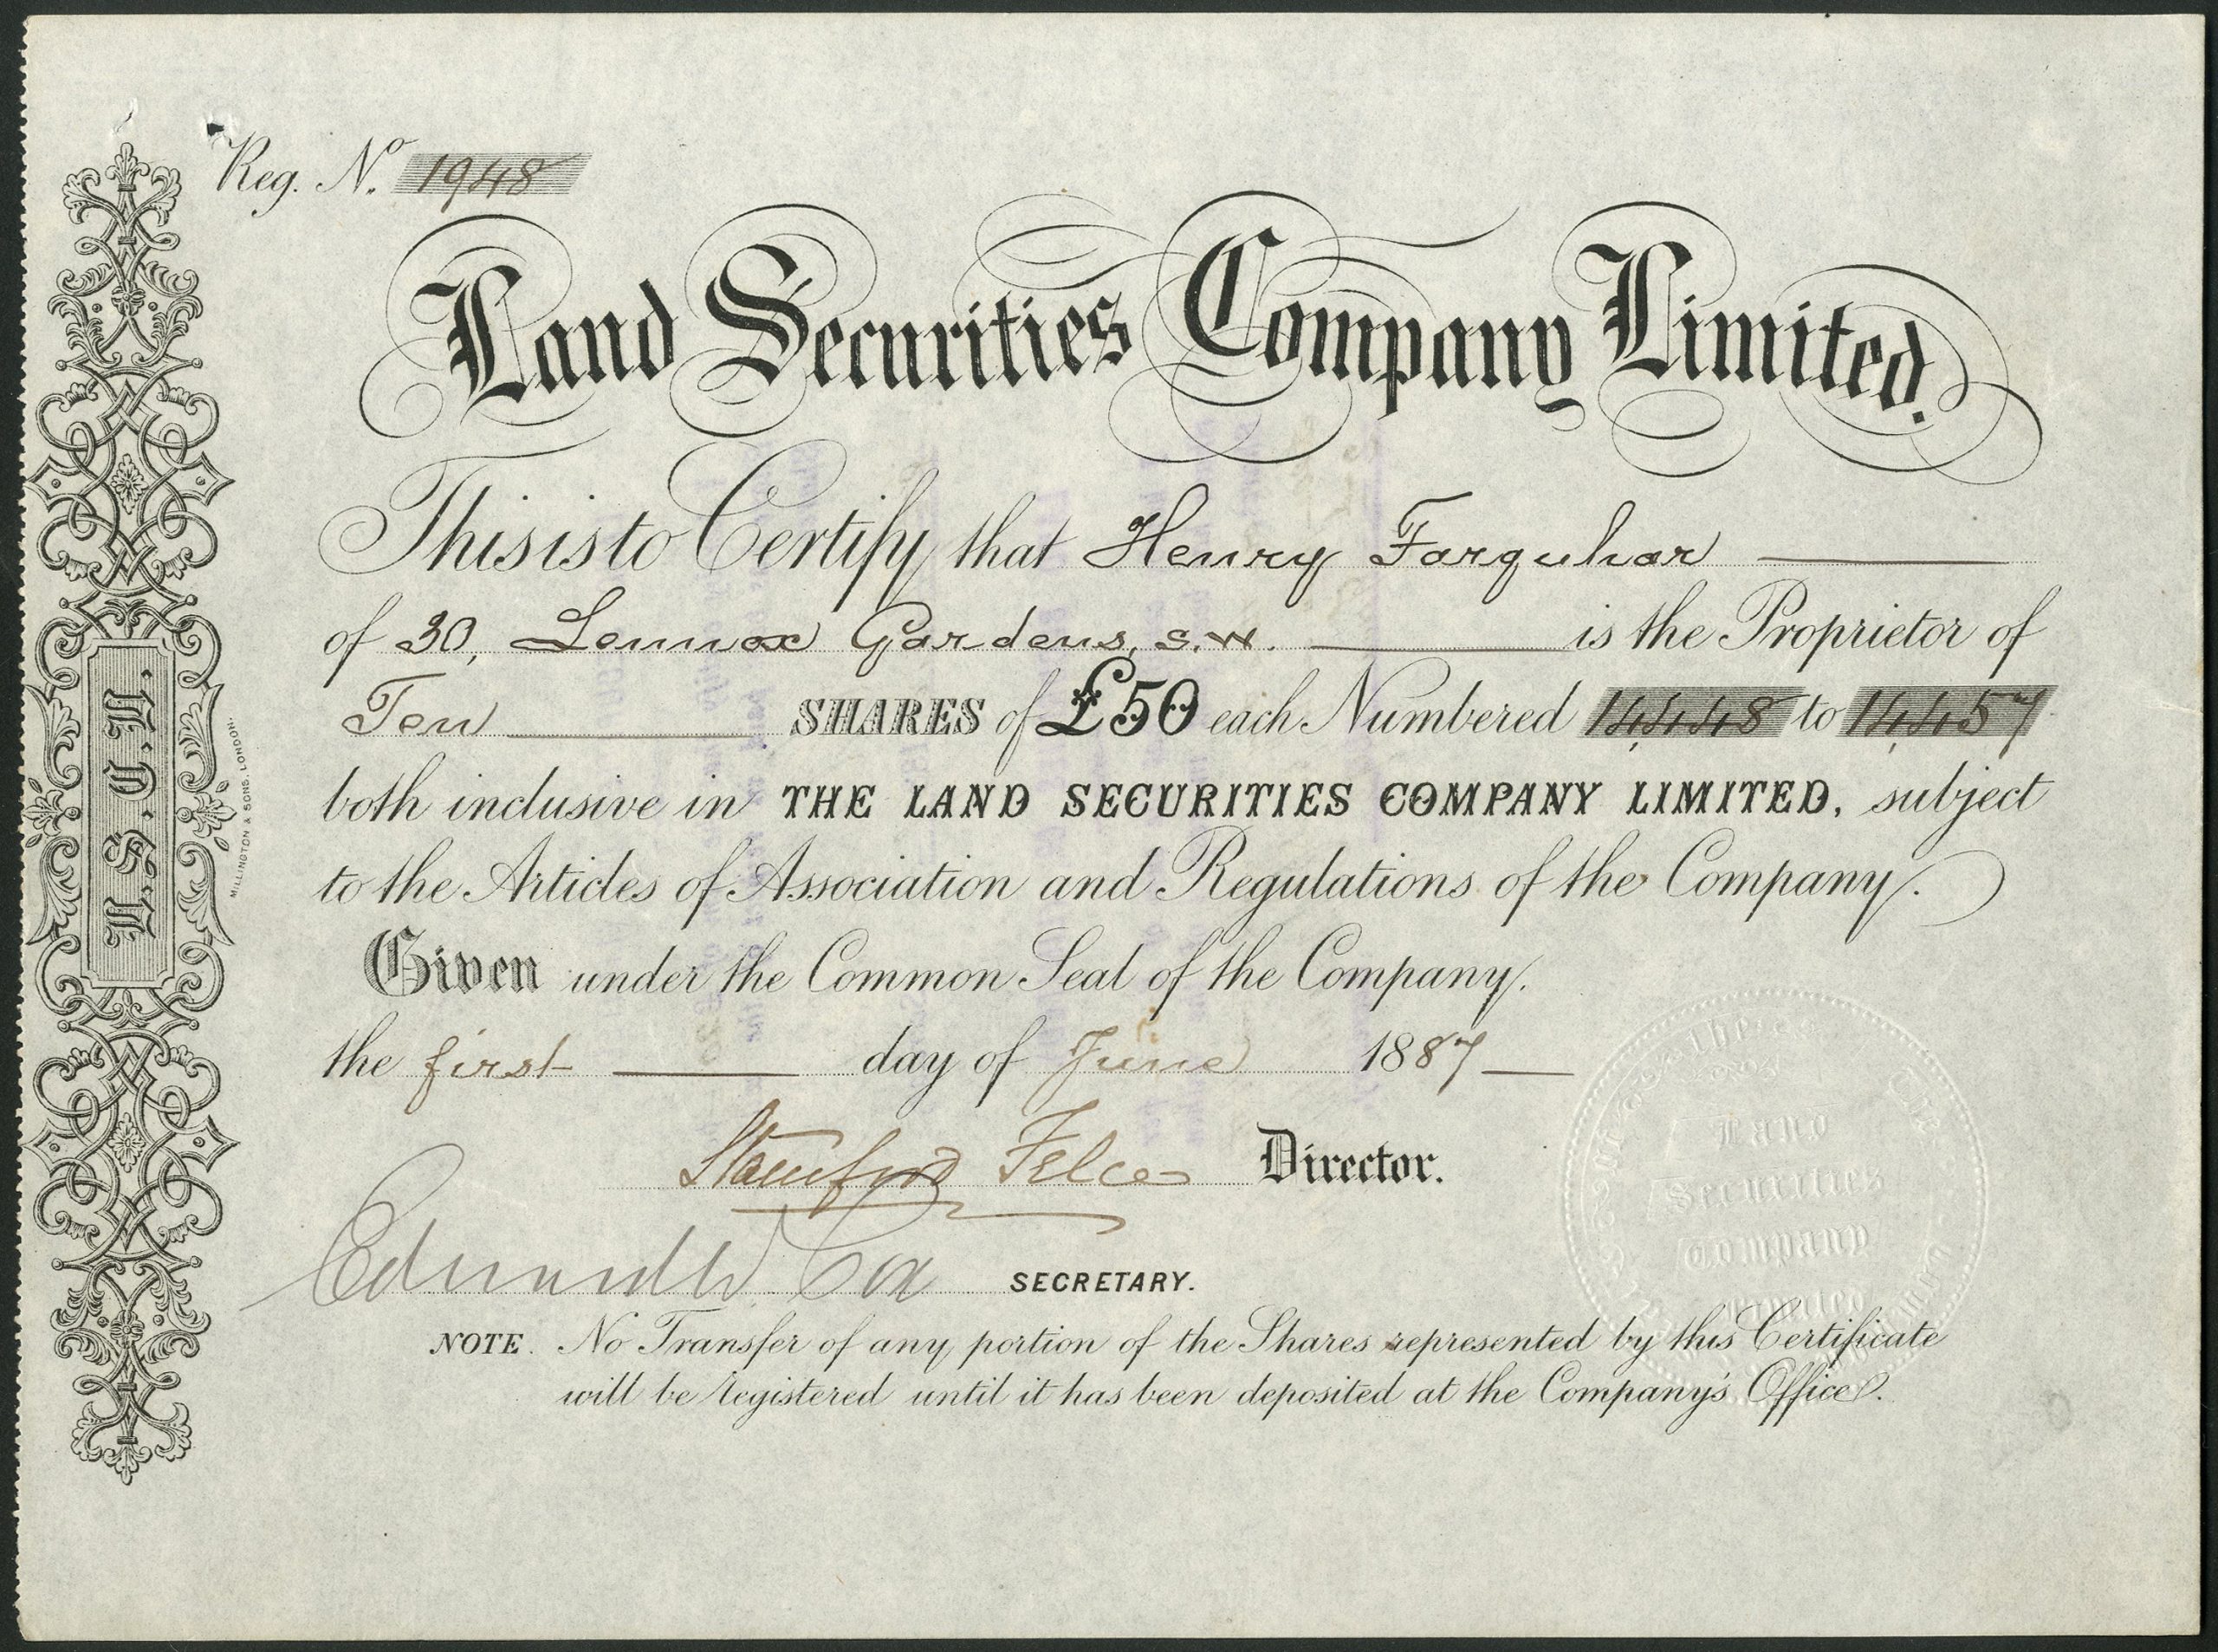 Reg. No. 1948
Land Securities Company Limited.
This is to Certify that Henry Farquhar
of 30, Lennox Gardens, S.W. is the Proprietor of
Ten SHARES of £50 each Numbered 14,448 to 14,457
both inclusive in THE LAND SECURITIES COMPANY LIMITED, subject
to the Articles of Association and Regulations of the Company.
Given under the Common Seal of the Company.
the first day of June 1887
Director.
Cox SECRETARY.
NOTE. No Transfer of any portion of the Shares represented by this Certificate
will be registered until it has been deposited at the Company's Office.
L.S.C.L.
MILLINGTON & SONS, LONDON.
Land
Securities
Company
Limited